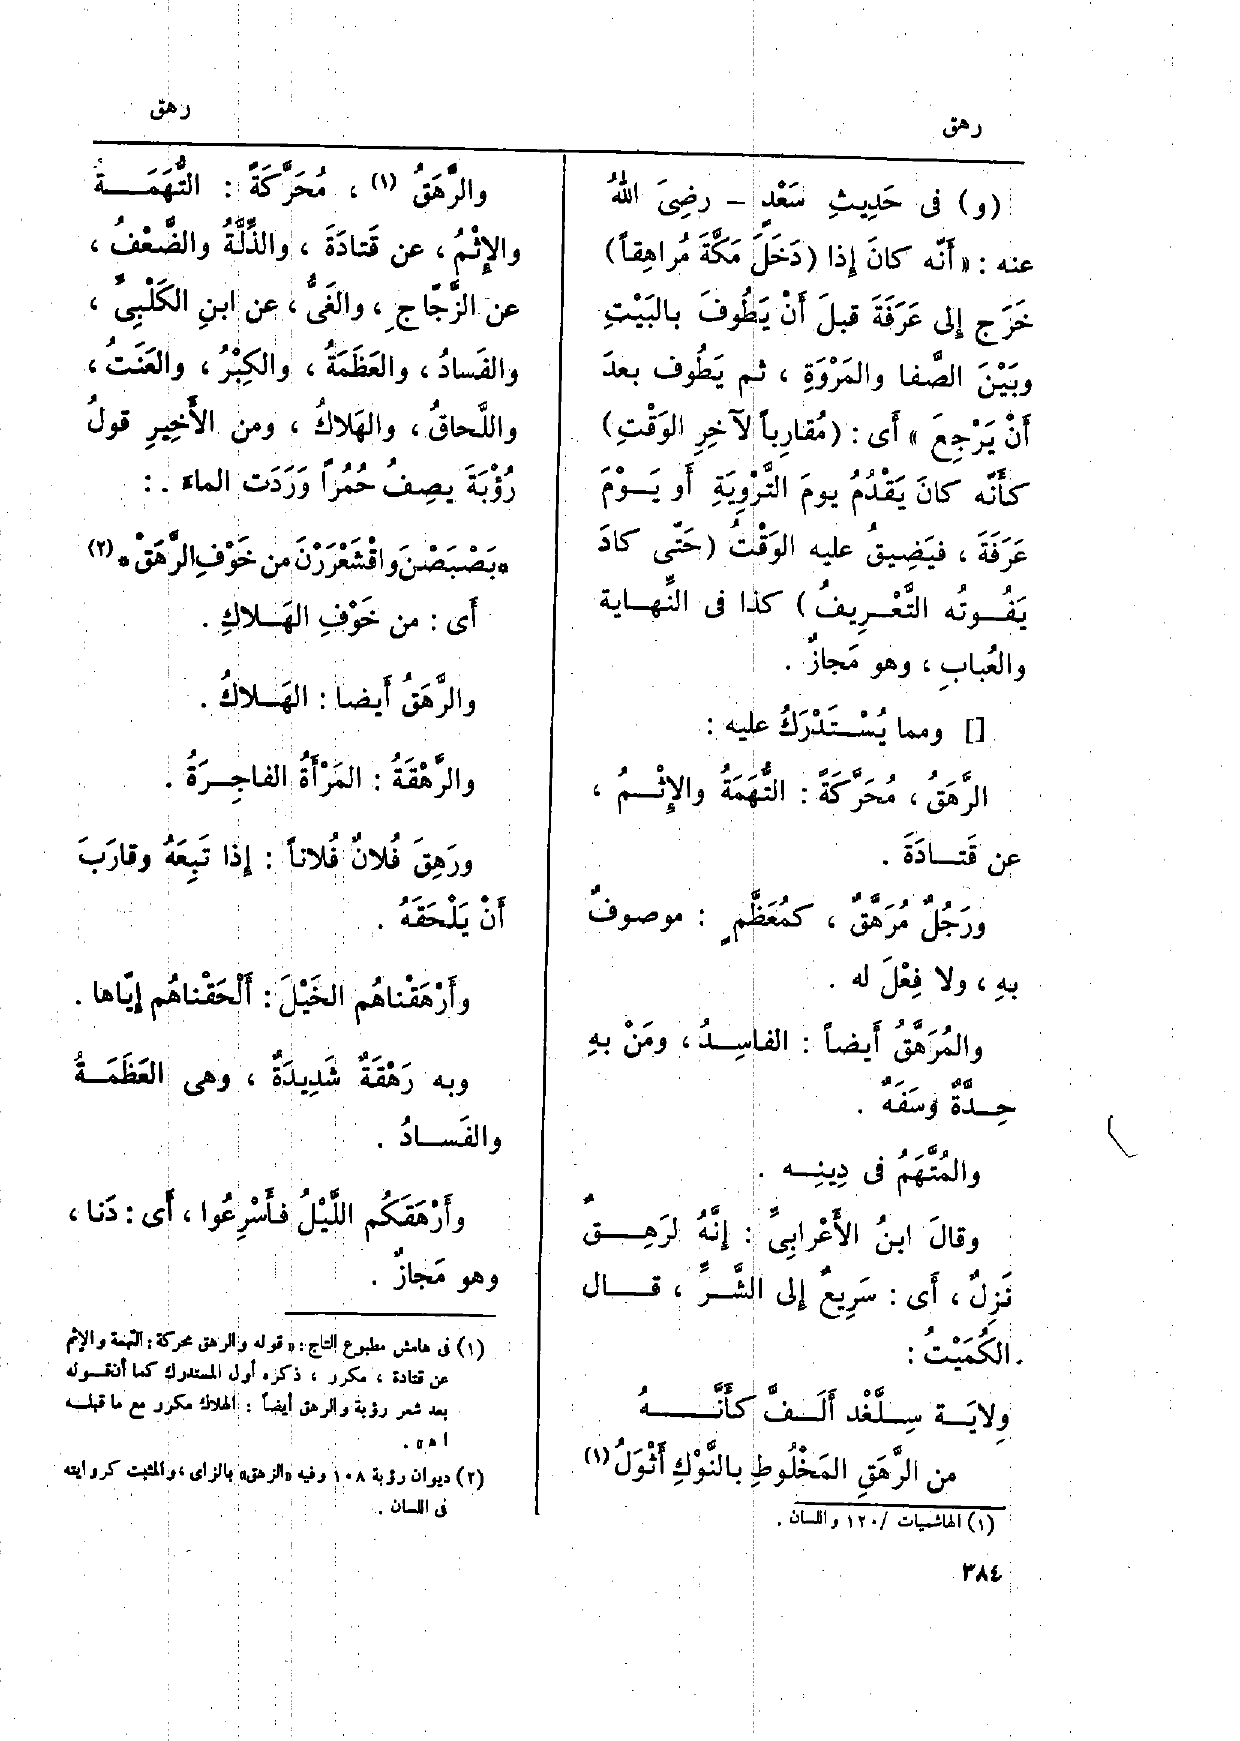 رهق
رهق
(و) فى حَدِيثِ سَعْدٍ - رضِىَ اللهُ
عنه : «أَنّه كانَ إذا (دَخَلَ مَكَّةَ مُراهِقاً)
خَرَج إلى عَرَفَةَ قبلَ أَنْ يَطُوفَ بالبَيْتِ
وبَيْنَ الصَّفا والمَرْوَةِ ، ثم يَطُوف بعدَ
أَنْ يَرْجِعَ » أى : (مُقارِباً لآخِرِ الوَقْتِ)
كأَنَّه كانَ يَقْدُمُ يومَ التَّرْوِيَةِ أَو يَـوْمَ
عَرَفَةَ ، فيَضِيقُ عليه الوَقْتُ (حَتّى كادَ
يَفُـوتُه التَّعْـرِيفُ) كذا فى النِّهـايَة
والعُبابِ ، وهو مَجازٌ .
[] ومما يُسْـتَدْرَكُ عليه :
الرَّهَقُ ، مُحَرَّكَةً : التُّهَمَةُ والإِثْـمُ ،
عن قَتـادَةَ .
ورَجُلٌ مُرَهَّقٌ ، كمُعَظَّمٍ : موصوفٌ
بهِ ، ولا فِعْلَ له .
والمُرَهَّقُ أَيضاً : الفاسِـدُ ، ومَنْ بهِ
حِـدَّةٌ وَسَفَه .
والمُتَّهَمُ فى دِينِـه .
وقالَ ابنُ الأَعْرابِىِّ : إنَّهُ لرَهِـقٌ
نَزِلٌ ، أَى : سَرِيعٌ إلى الشَّـرِّ ، قـال
الكُمَيْتُ :
وِلايَـة سِـلَّغْد أَلَـفَّ كأَنَّـهُ
من الرَّهَقِ المَخْلُوطِ بالنَّوْكِ أَثْوَلُ (١)
(١) الهاشميات /١٢٠ واللسان .
٣٨٤
والرَّهَقُ (١) ، مُحَرَّكَةً : التُّهَمَـةُ
والإِثْمُ ، عن قَتادَةَ ، والذِّلَّةُ والضَّعْفُ ،
عن الزَّجّاجِ ، والغَىُّ ، عن ابنِ الكَلْبِىِّ ،
والفَسادُ ، والعَظَمَةُ ، والكِبْرُ ، والعَنَتُ ،
واللَّحاقُ ، والهَلاكُ ، ومن الأَخِيرِ قولُ
رُؤْبَةَ يصِفُ حُمُراً وَرَدَت الماء . :
* بَصْبَصْنَ واقْشَعْرَرْنَ من خَوْفِ الرَّهَقْ * (٢)
أَى : من خَوْفِ الهَـلاكِ .
والرَّهَقُ أَيضا : الهَـلاكُ .
والرَّهْقَةُ : المَرْأَةُ الفاجِـرَةُ .
ورَهِقَ فُلانٌ فُلاناً : إذا تَبِعَهُ وقارَبَ
أَنْ يَلْحَقَهُ .
وأَرْهَقْناهُم الخَيْلَ : أَلْحَقْناهُم إيّاها .
وبه رَهْقَةٌ شَدِيدَةٌ ، وهى العَظَمَـةُ
والفَسـادُ .
وأَرْهَقَكُم اللَّيْلُ فأَسْرِعُوا ، أَى : دَنا ،
وهو مَجازٌ .
(١) فى هامش مطبوع التاج : « قوله والرهق محركة : التهمة والإثم
عن قتادة ، مكرر ، ذكره أول المستدرك كما أن قـوله
بعد شعر رؤبة والرهق أيضاً : الهلاك مكرر مع ما قبله
ا هـ» .
(٢) ديوان رؤبة ١٠٨ وفيه «الزهق» بالزاى ، والمثبت كروايته
فى اللسان .